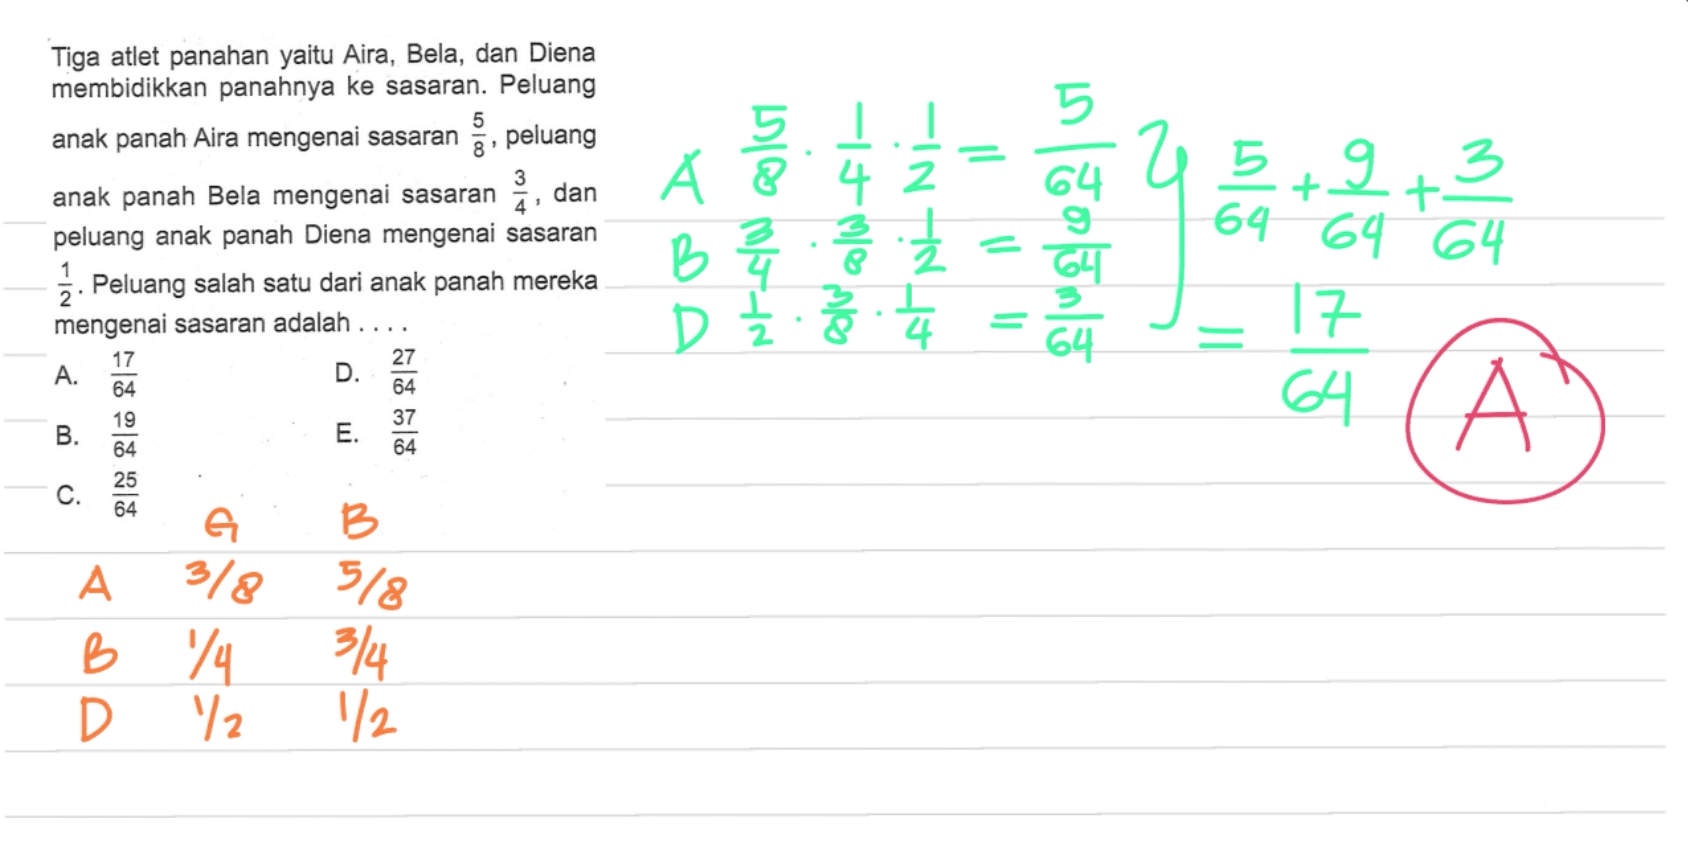 Tiga atlet panahan yaitu Aira, Bela, dan Diena
membidikkan panahnya ke sasaran. Peluang
anak panah Aira mengenai sasaran 5/8, peluang
anak panah Bela mengenai sasaran 3/4, dan
peluang anak panah Diena mengenai sasaran
1/2. Peluang salah satu dari anak panah mereka
mengenai sasaran adalah . . . .
A. 17/64 D. 27/64
B. 19/64 E. 37/64
C. 25/64
G B
A 3/8 5/8
B 1/4 3/4
D 1/2 1/2
A 5/8 · 1/4 · 1/2 = 5/64
B 3/4 · 3/8 · 1/2 = 9/64
D 1/2 · 3/8 · 1/4 = 3/64
5/64 + 9/64 + 3/64
= 17/64
A